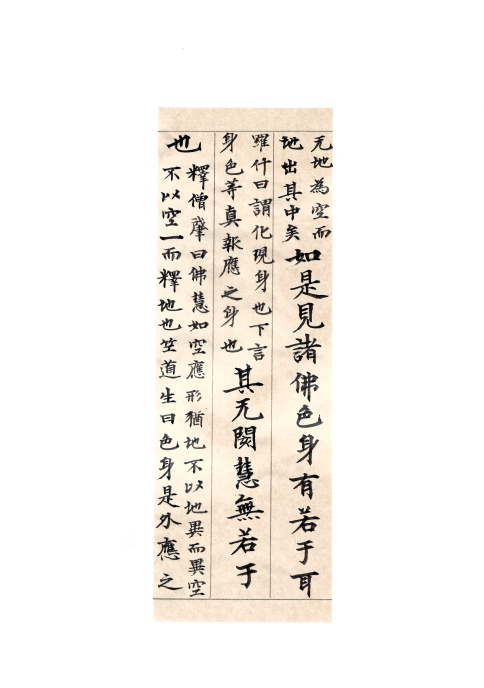 无地為空而
地出其中矣
如是見諸佛色身有若于耳
羅什曰謂化現身也下言
身色等真報應之身也
其无閡慧無若于
也
釋僧肇曰佛慧如空應形猶地不以地異而異空
不以空一而釋地也竺道生曰色身是外應之